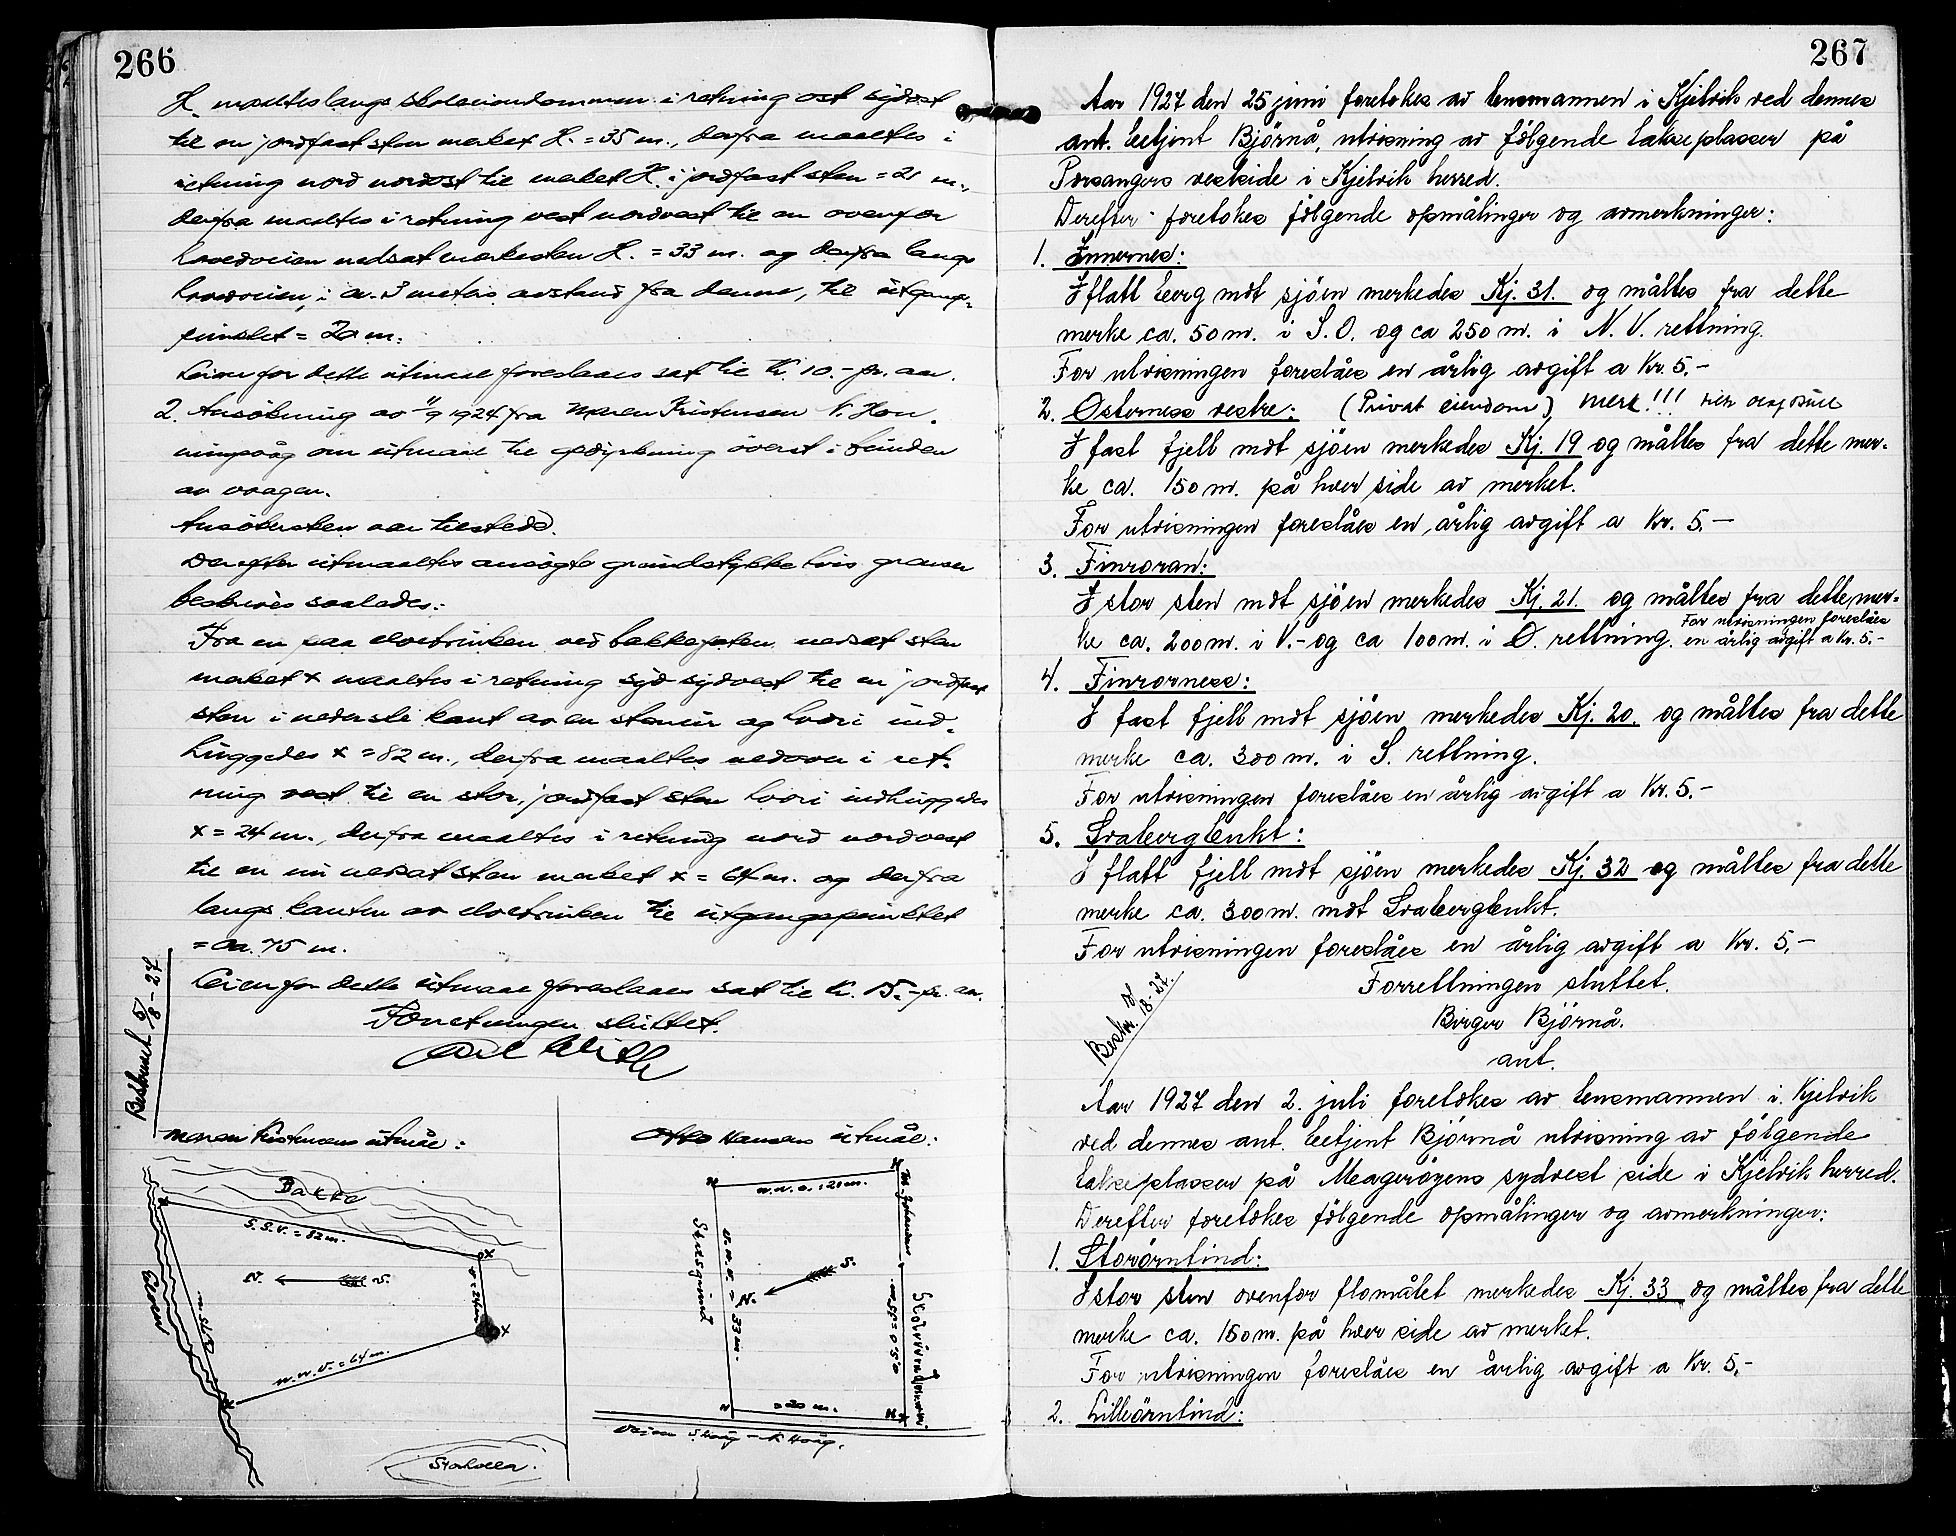 266
H. maaltes langs skoleeiendommen i retning ost sydost
til en jordfast sten merket H. = 35 m., derfra maaltes i
retning nord nordost til merket H. i jordfast sten = 21 m.,
derfra maaltes i retning vest nordvest til en ovenfor
hovedveien nedsat merkesten H. = 33 m. og derfra langs
hovedveien, i ca. 3 meters avstand fra denne, til utgangs-
punktet = 20 m.
Leien for dette utmaal foreslaaes sat til kr. 10.- pr. aar.
2. Ansökning av 11/9 1924 fra Maren Kristensen N. Hon-
ningsvåg om utmaal til opdyrkning överst i bunden
av vaagen.
Ansökersken var tilstede.
Derefter utmaaltes ansögte grundstykke hvis grænser
beskrives saaledes:
Fra en paa elvebrinken ved bakkefoten nedsat sten
merket x maaltes i retning syd sydvest til en jordfast
sten i nederste kant av en stenur og hvori ind-
huggedes x = 82 m., derfra maaltes nedover i ret-
ning vest til en stor, jordfast sten hvori indhuggedes
x = 24 m., derfra maaltes i retning nord nordvest
til en nu nedsat sten merket x = 64 m. og derfra
langs kanten av elvebrinken til utgangspunktet
= ca. 75 m.
Leien for dette utmaal foreslaaes sat til kr. 15.- pr. aar.
Forretningen sluttet.
Beskrevet 5/8 - 27
Maren Kristensens utmål:
Bakke
S.S.V. = 82 m.
N. S.
V = 24 m.
Elven
N.N.V. = 64 m.
Otto Hansens utmål:
N.N.O. = 21 m.
Statsgrund
V.N.V. = 33 m.
N. S.
= 20 m.
O.S.O. = 35 m.
Skoleiendommen
Veien S. Våg - N. Våg.
267
Aar 1927 den 25 juni foretokes av lensmannen i Kjelvik ved dennes
ant. betjent Björnå, utvisning av fölgende lakseplasser på
Porsangers vestside i Kjelvik herred.
Derefter foretokes fölgende opmålinger og avmerkninger:
1. Innernes:
I flatt berg mot sjöen merkedes Kj. 31. og måltes fra dette
merke ca. 50 m. i S.O. og ca 250 m. i N.V. rettning.
For utvisningen foreslåes en årlig avgift a Kr. 5.-
2. Osterness vestre: (Privat eiendom) merk!!!
I fast fjell mot sjöen merkedes Kj. 19 og måltes fra dette mer-
ke ca. 150 m. på hver side av merket.
For utvisningen foreslåes en årlig avgift a Kr. 5.-
3. Finvoran:
I stor sten mot sjöen merkedes Kj. 21. og måltes fra dette mer-
ke ca. 200 m. i V.- og ca 100 m. i O. rettning. For utvisningen foreslåes
en årlig avgift a Kr. 5.-
4. Finvorness:
I fast fjell mot sjöen merkedes Kj. 20. og måltes fra dette
merke ca. 300 m. i S. rettning.
For utvisningen foreslåes en årlig avgift a Kr. 5.-
5. Svabergbukt:
I flatt fjell mot sjöen merkedes Kj. 32 og måltes fra dette
merke ca. 300 m. mot Svabergbukt.
For utvisningen foreslåes en årlig avgift a Kr. 5.-
Forrettningen sluttet.
Birger Björnå.
ant.
Aar 1927 den 2. juli foretokes av lensmannen i Kjelvik
ved dennes ant. betjent Björnå utvisning av fölgende
lakseplasser på Mageröyens sydvest side i Kjelvik herred.
Derefter foretokes fölgende opmålinger og avmerkninger:
1. Storörntind:
I stor sten ovenfor flomålet merkedes Kj. 33 og måltes fra dette
merke ca. 150 m. på hver side av merket.
For utvisningen foreslåes en årlig avgift a Kr. 5.-
2. Lilleörntind: